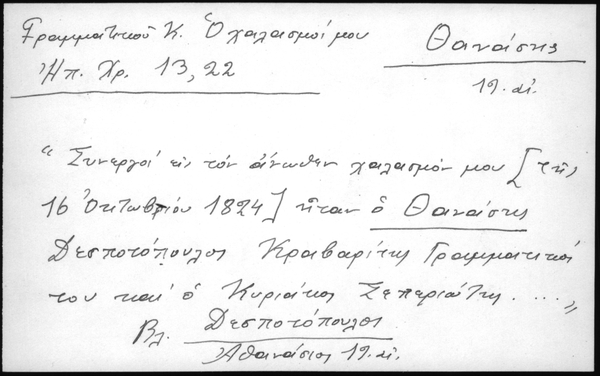 Γραμματικοῦ Κ. Ὁ χαλασμός μου
Θανάσης
Ἠπ. Χρ. 13, 22
19. αἰ.
"Συνεργοί εἰς τόν ἄνωθεν χαλασμόν μου [τῆς
16 Ὀκτωβρίου 1824] ἦταν ὁ Θανάσης
Δεσποτόπουλος Κραβαρίτης Γραμματικός
του και ὁ Κυριάκος Σεπεριώτης....„
Βλ. Δεσποτόπουλος
Ἀθανάσιος 19. αἰ.